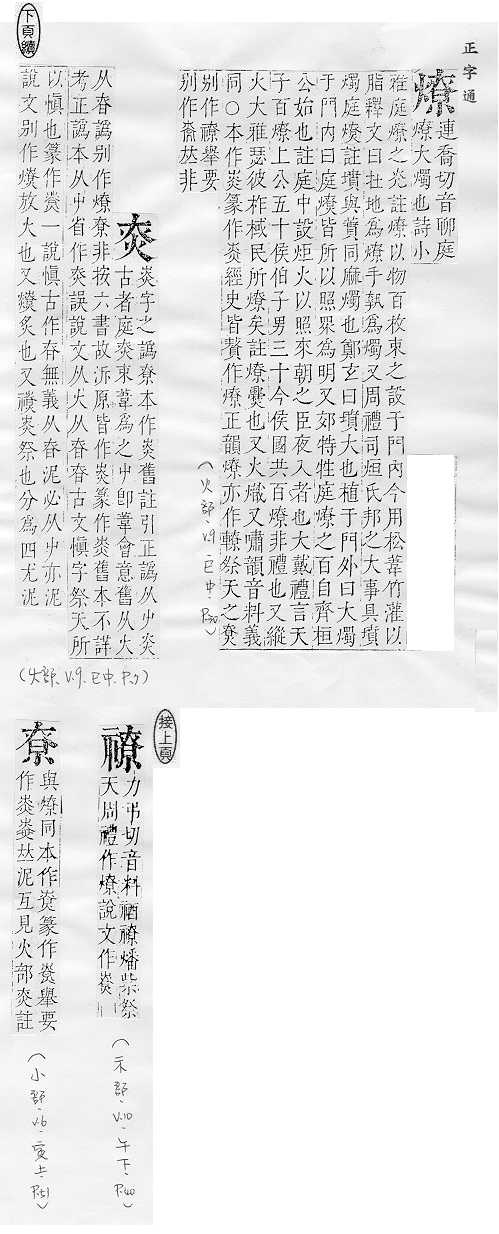 正字通
燎
連喬切音聊庭
燎大燭也詩小
雅庭燎之光註燎以物百枚束之設于門內今用松葦竹灌以
脂釋文曰在地為燎手執為燭又周禮司烜氏邦之大事具墳
燭庭燎註墳與蕡同麻燭也鄭玄曰墳大也植于門外曰大燭
于門內曰庭燎皆所以照眾為明又郊特牲庭燎之百自齊桓
公始也註庭中設炬火以照來朝之臣夜入者也大戴禮言天
子百燎上公五十侯伯子男三十今侯國共百燎非禮也又縱
火大雅瑟彼柞棫民所燎矣註燎爨也又火熾又嘯韻音料義
同○本作尞篆作尞經史皆贊作燎正韻燎亦作轑祭天之尞
別作禷舉要
別作𤊽𠀤非
(火部.V.9.巳中.P.30)
下頁續
尞
尞字之譌尞本作尞舊註引正譌从屮炎
古者庭尞束葦為之屮卽葦會意舊从火
从昚譌別作燎尞非按六書故泝原皆作尞篆作尞舊本不詳
考正譌本从屮省作尞誤說文从火从昚昚古文慎字祭天所
以慎也篆作尞一說慎古作昚無義从昚泥必从屮亦泥
說文別作燎放火也又爒炙也又禷尞祭也分為四尤泥
(火部.V.9.巳中.P.7)
接上頁
禷
力弔切音料𥙫禷燔柴祭
天周禮作燎說文作尞
(示部.V.10.午下.P.40)
尞
與燎同本作尞篆作尞舉要
作尞𤊽𠀤泥互見火部尞註
(小部.V.6.寅上.P.51)